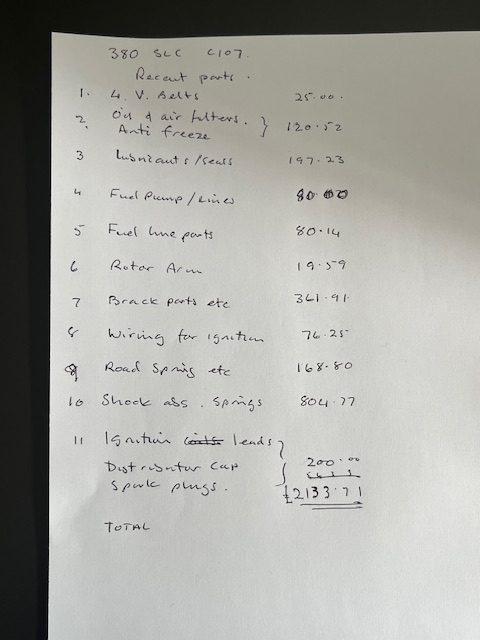 380 SLC C107.
Recent parts.
1. 4. V. Belts 25.00.
2. Oil & air filters. } 120.52
Anti freeze
3 Lubricants/seals 197.23
4 Fuel Pump/Lines 80.00
5 Fuel line parts 80.14
6 Rotor Arm 19.59
7 Brack parts etc 361.91
8 Wiring for ignition 76.25
9 Road Spring etc 168.80
10 Shock abs. Springs 804.77
11 Ignition leads }
Distributor Cap 200.00
Spark plugs. £2133.71
TOTAL